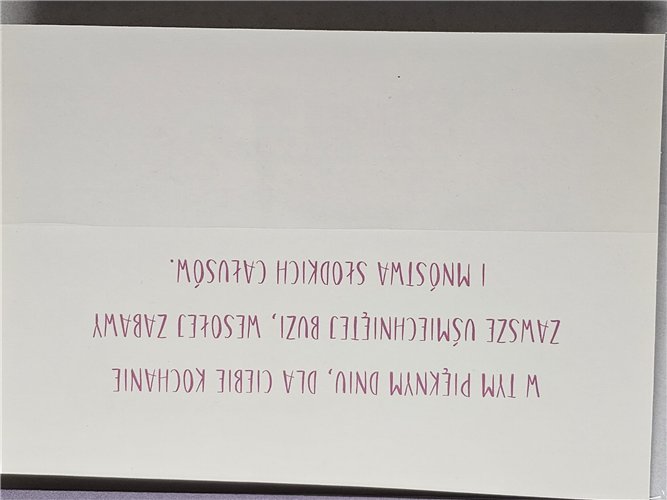 W TYM PIĘKNYM DNIU, DLA CIEBIE KOCHANIE
ZAWSZE UŚMIECHNIĘTEJ BUZI, WESOŁEJ ZABAWY
I MNÓSTWA SŁODKICH CAŁUSÓW.